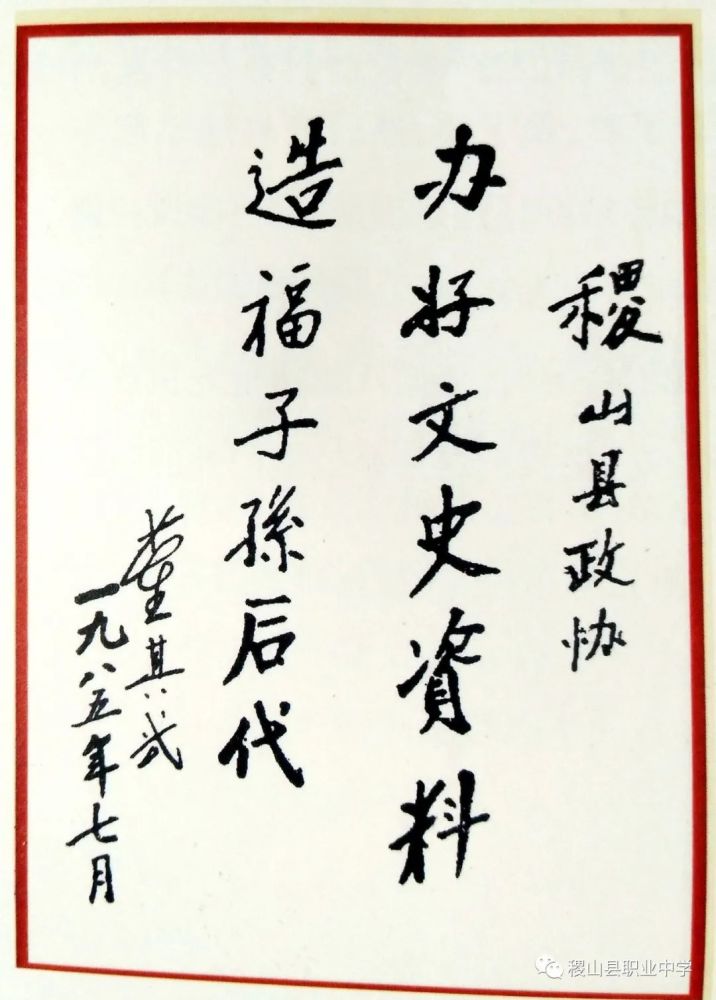 稷山县政协
办好文史資料
造福子孫后代
董其武
一九八五年七月
稷山县职业中学